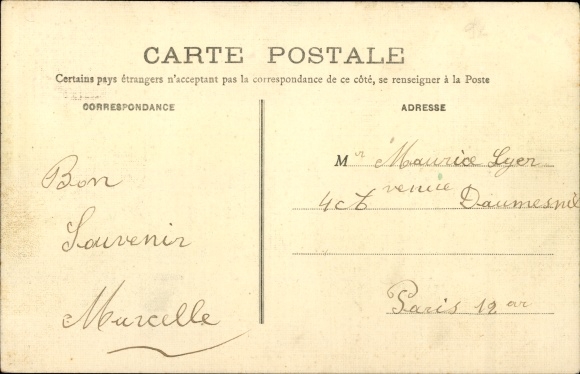 CARTE POSTALE
Certains pays étrangers n'acceptant pas la correspondance de ce côté, se renseigner à la Poste
CORRESPONDANCE
Bon
Souvenir
Marcelle
ADRESSE
Mr Maurice Lyer
venue Daumesnil
Paris 12 ar